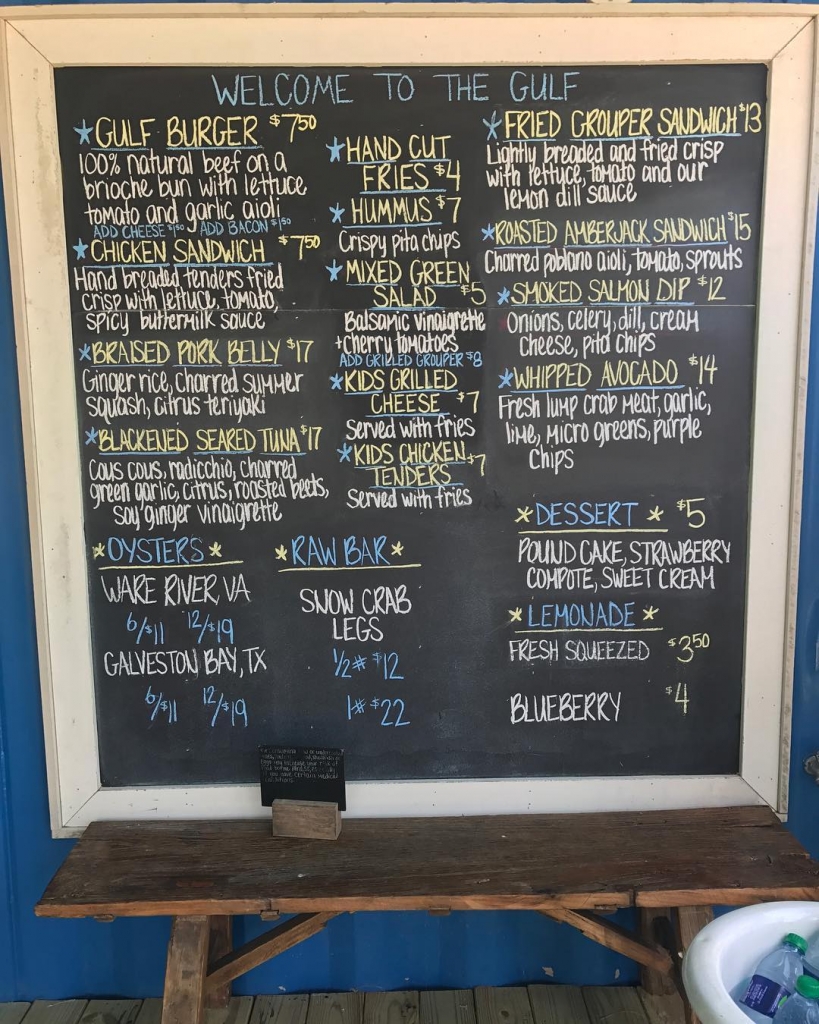 WELCOME TO THE GULF
GULF BURGER $7.50
100% natural beef on a
brioche bun with lettuce
tomato and garlic aioli
ADD CHEESE $1.50 ADD BACON $1.50
CHICKEN SANDWICH $7.50
Hand breaded tenders fried
crisp with lettuce, tomato,
spicy buttermilk sauce
BRAISED PORK BELLY $17
Ginger rice, charred summer
squash, citrus teriyaki
BLACKENED SEARED TUNA $17
Cous cous, radicchio, charred
green garlic, citrus, roasted beets,
soy ginger vinaigrette
HAND CUT
FRIES $4
HUMMUS $7
Crispy pita chips
MIXED GREEN
SALAD $5
Balsamic vinaigrette
+ cherry tomatoes
ADD GRILLED GROUPER $8
KIDS GRILLED
CHEESE $7
Served with fries
KIDS CHICKEN
TENDERS $7
Served with fries
FRIED GROUPER SANDWICH $13
Lightly breaded and fried crisp
with lettuce, tomato and our
lemon dill sauce
ROASTED AMBERJACK SANDWICH $15
Charred poblano aioli, tomato, sprouts
SMOKED SALMON DIP $12
Onions, celery, dill, cream
cheese, pita chips
WHIPPED AVOCADO $14
Fresh lump crab meat, garlic,
lime, micro greens, purple
chips
OYSTERS
WARE RIVER, VA
6/$11 12/$19
GALVESTON BAY, TX
6/$11 12/$19
RAW BAR
SNOW CRAB
LEGS
1/2# $12
1# $22
DESSERT $5
POUND CAKE, STRAWBERRY
COMPOTE, SWEET CREAM
LEMONADE
FRESH SQUEEZED $3.50
BLUEBERRY $4